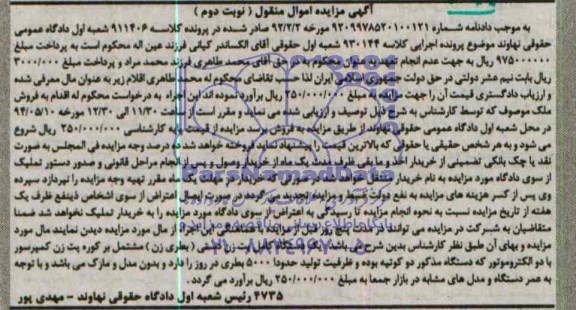 آگهی مزایده اموال منقول ( نوبت دوم )
به موجب دادنامه شماره ۹۲۰۹۹۷۸۵۲۰۱۰۰۱۲۱ مورخه ۹۲/۲/۲ صادر شده در پرونده کلاسه ۹۱۱۴۰۶ شعبه اول دادگاه عمومی
حقوقی نهاوند موضوع پرونده اجرایی کلاسه ۹۳۰۱۴۴ شعبه اول حقوقی آقای الکساندر کیانی فرزند عین اله محکوم است به پرداخت مبلغ
۹۷۵۰۰۰۰۰۰ ریال به جهت عدم انجام تعهد به عنوان محکوم به در حق آقای محمد طاهری فرزند محمد مراد و پرداخت مبلغ ۳۰۰۰/۰۰۰
ریال بابت نیم عشر دولتی در حق دولت جمهوری اسلامی ایران لذا حسب تقاضای محکوم له محمد طاهری اقلام زیر به عنوان مال معرفی شده
و ارزیاب دادگستری قیمت آن را جهت مزایده به مبلغ ۲۵۰/۰۰۰/۰۰۰ ریال برآورد نموده اند این اجراء به درخواست محکوم له اقدام به فروش
ملک موصوف که توسط کارشناس به شرح ذیل توصیف و ارزیابی شده می نماید و مقرر است از ساعت ۱۱/۳۰ الی ۱۲/۳۰ مورخه ۹۴/۰۵/۱۰
در محل شعبه اول دادگاه عمومی حقوقی نهاوند از طریق مزایده به فروش برسد مزایده از قیمت پایه کارشناسی ۲۵۰/۰۰۰/۰۰۰ ریال شروع
می شود و به هر شخص حقیقی یا حقوقی که بالاترین قیمت را پیشنهاد نماید فروخته خواهد شد ده درصد وجه مزایده فی المجلس به صورت
نقد یا چک بانکی تضمینی از خریدار اخذ و مابقی ظرف مدت یک ماه از خریدار وصول و پس از انجام مراحل قانونی و صدور دستور تملیک
از سوی دادگاه مورد مزایده به نام خریدار می گردد در صورتی که خریدار در مهلت یک ماه مقرر تهیه وجه مزایده را نپردازد سپرده
وی پس از کسر هزینه های مزایده به نفع دولت ضبط و مزایده تجدید می گردد در صورت ایصال اعتراض از سوی اشخاص ذینفع ظرف یک
هفته از تاریخ مزایده نسبت به نحوه انجام مزایده تا رسیدگی به اعتراض از سوی دادگاه مورد مزایده را به خریدار تملیک نخواهد شد ضمنا
متقاضیان به شرکت در مزایده می توانند در مدت پنج روز قبل از مزایده با مراجعه به این اجرا از مال مورد مزایده دیدن نمایند مال مورد
مزایده و بهای آن طبق نظر کارشناس بدین شرح می باشد: یک دستگاه کامل بطری زن ( ) مشتمل بر کوره پت زن کمپرسور
با دو الکتروموتور که دستگاه مذکور دو کوتپه بوده و ظرفیت تولید حدودا ۵۰۰۰ بطری در روز را دارد و بدون مدل و مارک می باشد و با توجه
به عمر دستگاه و مدل های مشابه در بازار جمعا به مبلغ ۲۵۰/۰۰۰/۰۰۰ ریال برآورد می گردد .
۴۷۳۵ رئیس شعبه اول دادگاه حقوقی نهاوند - مهدی پور
ParsNamadData
۰۲۱-۸۸۳۴۹۶۷۰-۵